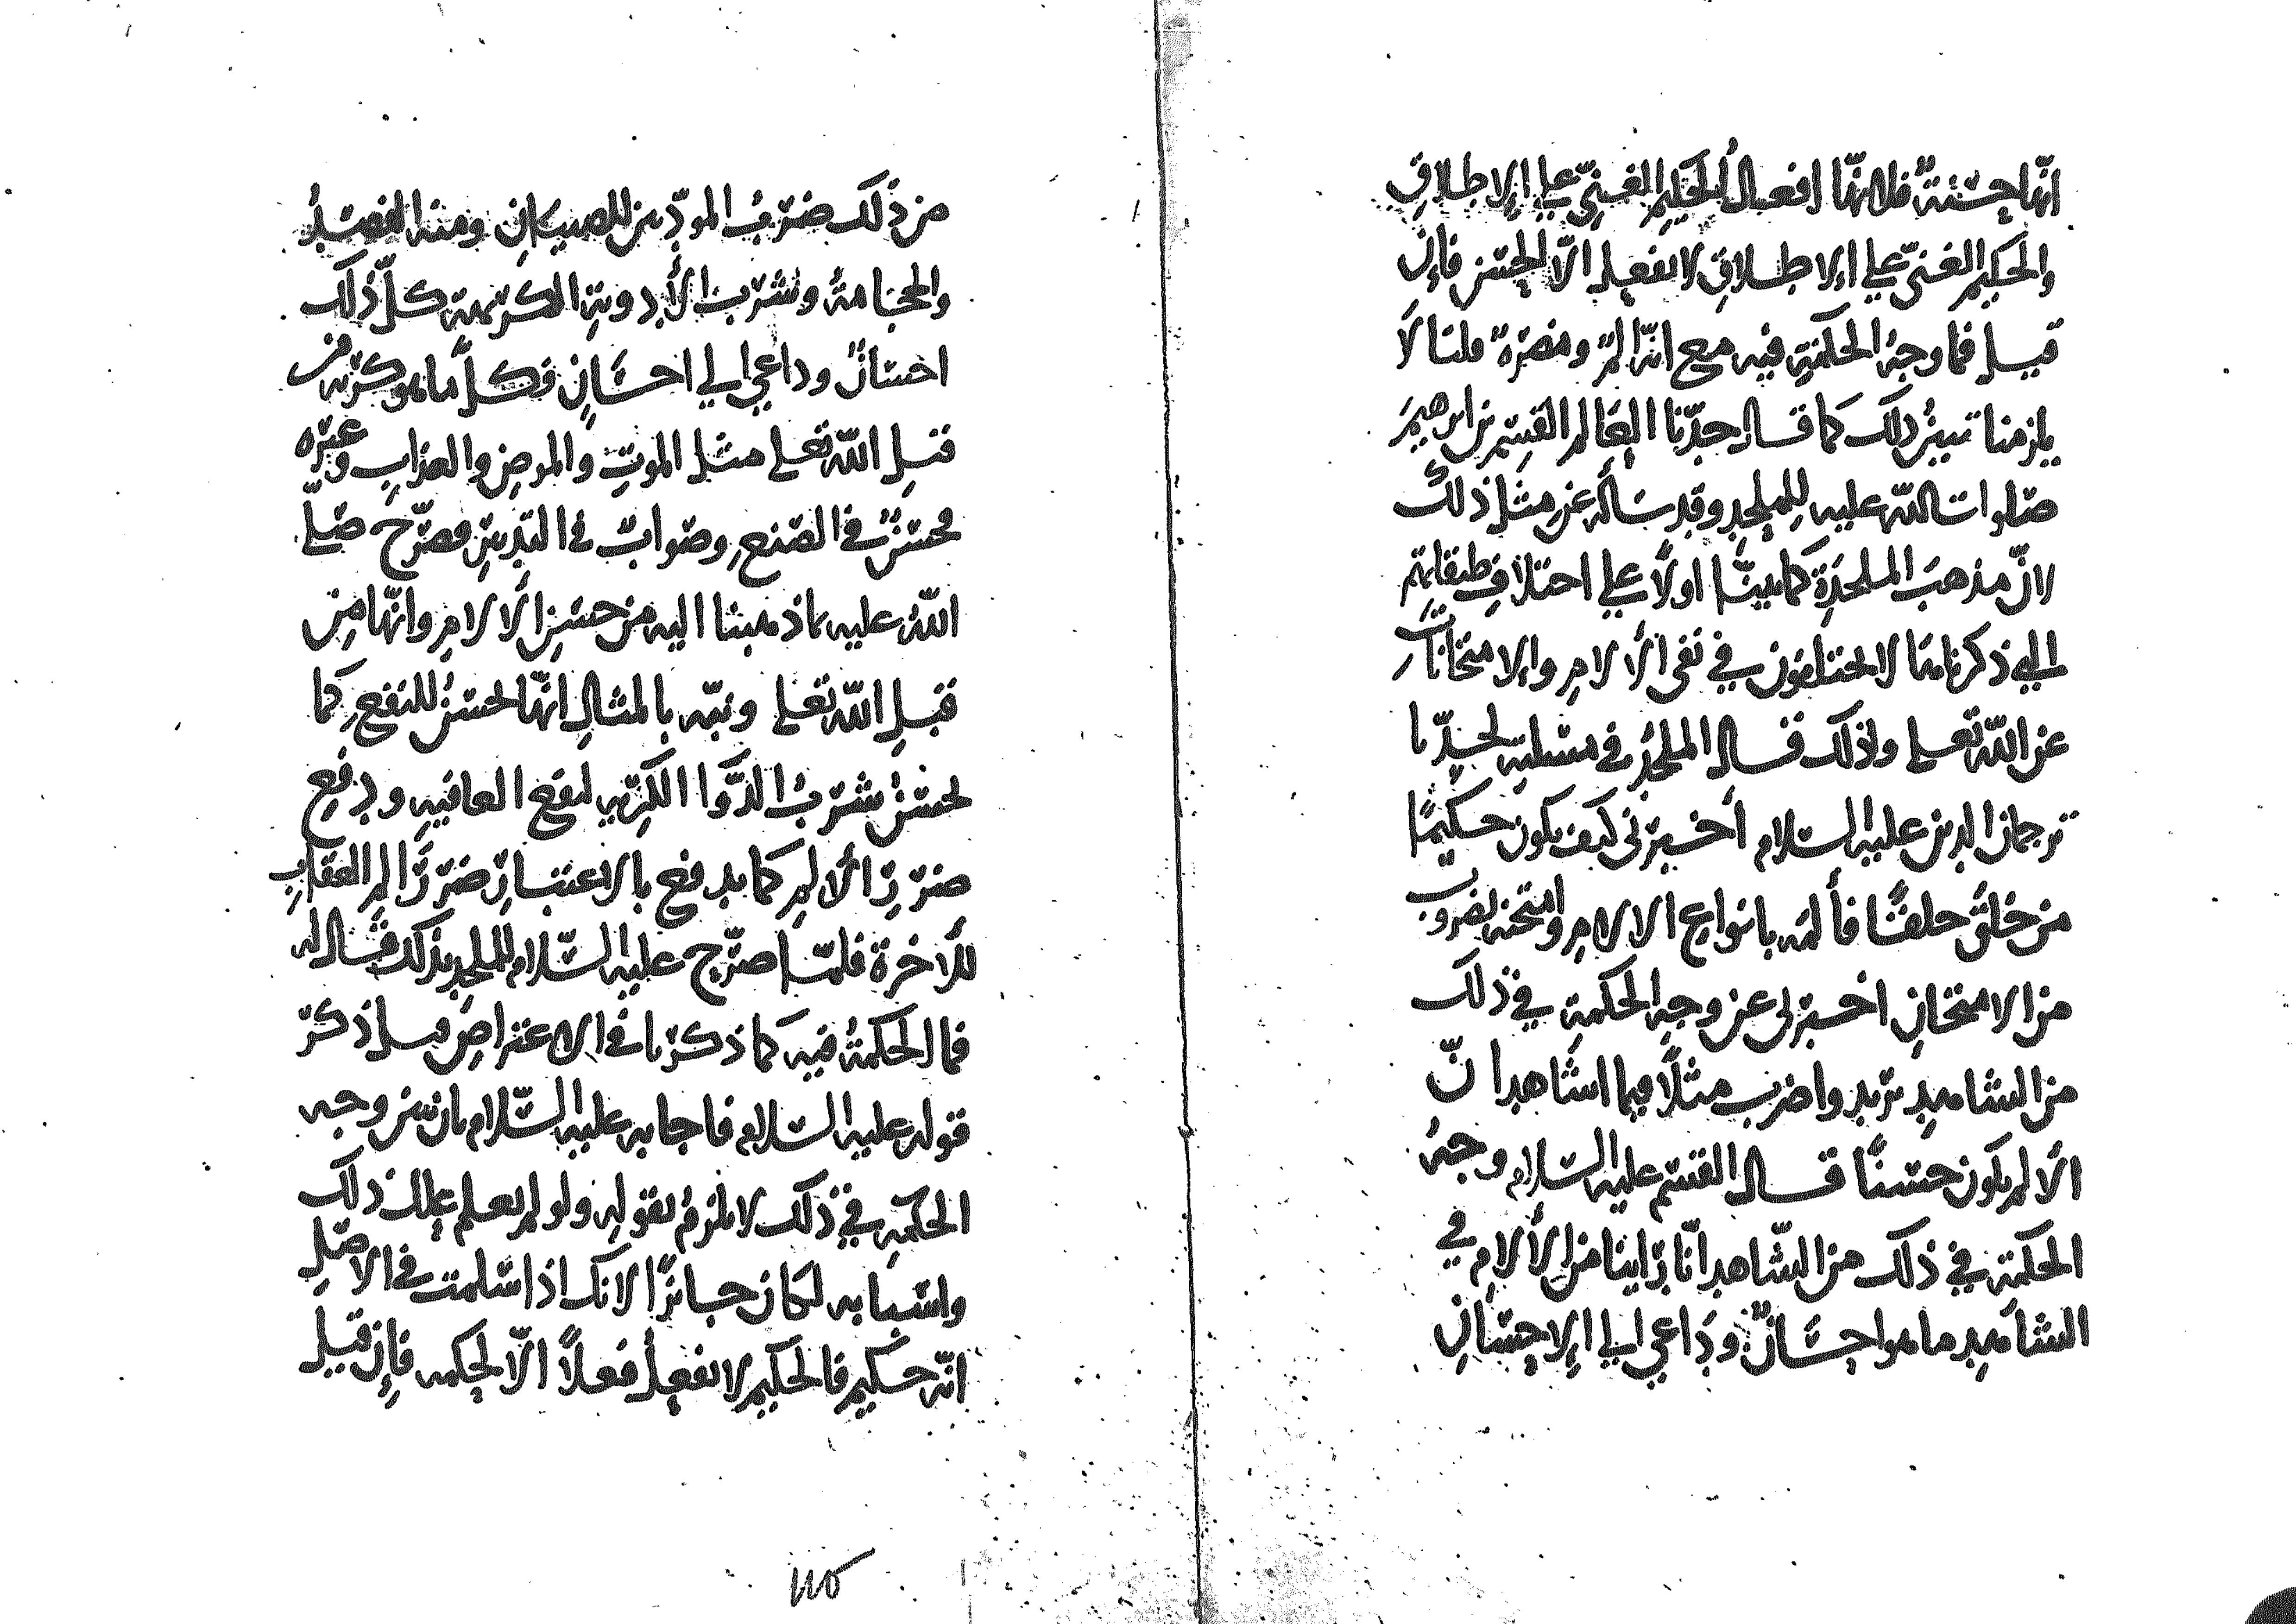 انها حسنة فلانها افعال الحكيم الغني على الاطلاق
والحكيم الغني على الاطلاق لا يفعل الا الحسن فإن
قيل فما وجه الحكمة فيه مع انه الم ومضرة قلنا لا
يلزمنا تبيين ذلك كما قال جدنا العالم القسم بن ابرهيم
صلوات الله عليه للملحد وقد سأله عن مثل ذلك
لان مذهب الملحدة كما بينا اولا على اختلاف طبقاتهم
التي ذكرناها لا يختلفون في نفى الألام والامتحانات
عن الله تعلى ولذلك قال الملحد في مسئلته لجدنا
ترجمان الدين عليه السلام أخبرني كيف يكون حكيما
من خلق خلقا فألمه بانواع الالام وامتحنه بضروب
من الامتحان اخبرني عن وجه الحكمة في ذلك
من الشاهد تريد واضرب مثلا فيما اشاهد ان
الألم يكون حسنا قال القسم عليه السلام وجه
الحكمة في ذلك من الشاهد انا راينا من الألام في
الشاهد ما هو احسان وداعي الى الاحسان
من ذلك ضرب المؤدبين للصبيان ومنه الفصد
والحجامة وشرب الأدوية الكريهة كل ذلك
احسان وداعي الى احسان فكل ما هو كريه من
قبل الله تعلى مثل الموت والمرض والعذاب وغيره
فحسن في الصنع وصواب في التدبير فصرح صلى
الله عليه بما ذهبنا اليه من حسن الألام وانها من
قبل الله تعلى ونبه بالمثال انها لحسن للنفع كما
يحسن شرب الدوا الكريه لنفع العافيه ودفع
ضرر الألم كما يدفع بالاعتبار ضرر الم العقاب
للأخرة فلما صرح عليه السلام للملحد بذلك قال له
فما الحكمة فيه كما ذكرنا في الاعتراض قبل ذكر
قوله عليه السلام فاجابه عليه السلام بان تبين وجه
الحكمة في ذلك لا يلزم بقوله ولو لم يعلم علل ذلك
واسبابه لكان جائزا لانك اذا سلمت في الاصل
انه حكيم فالحكيم لا يفعل فعلا الا لحكمه فإن قيل